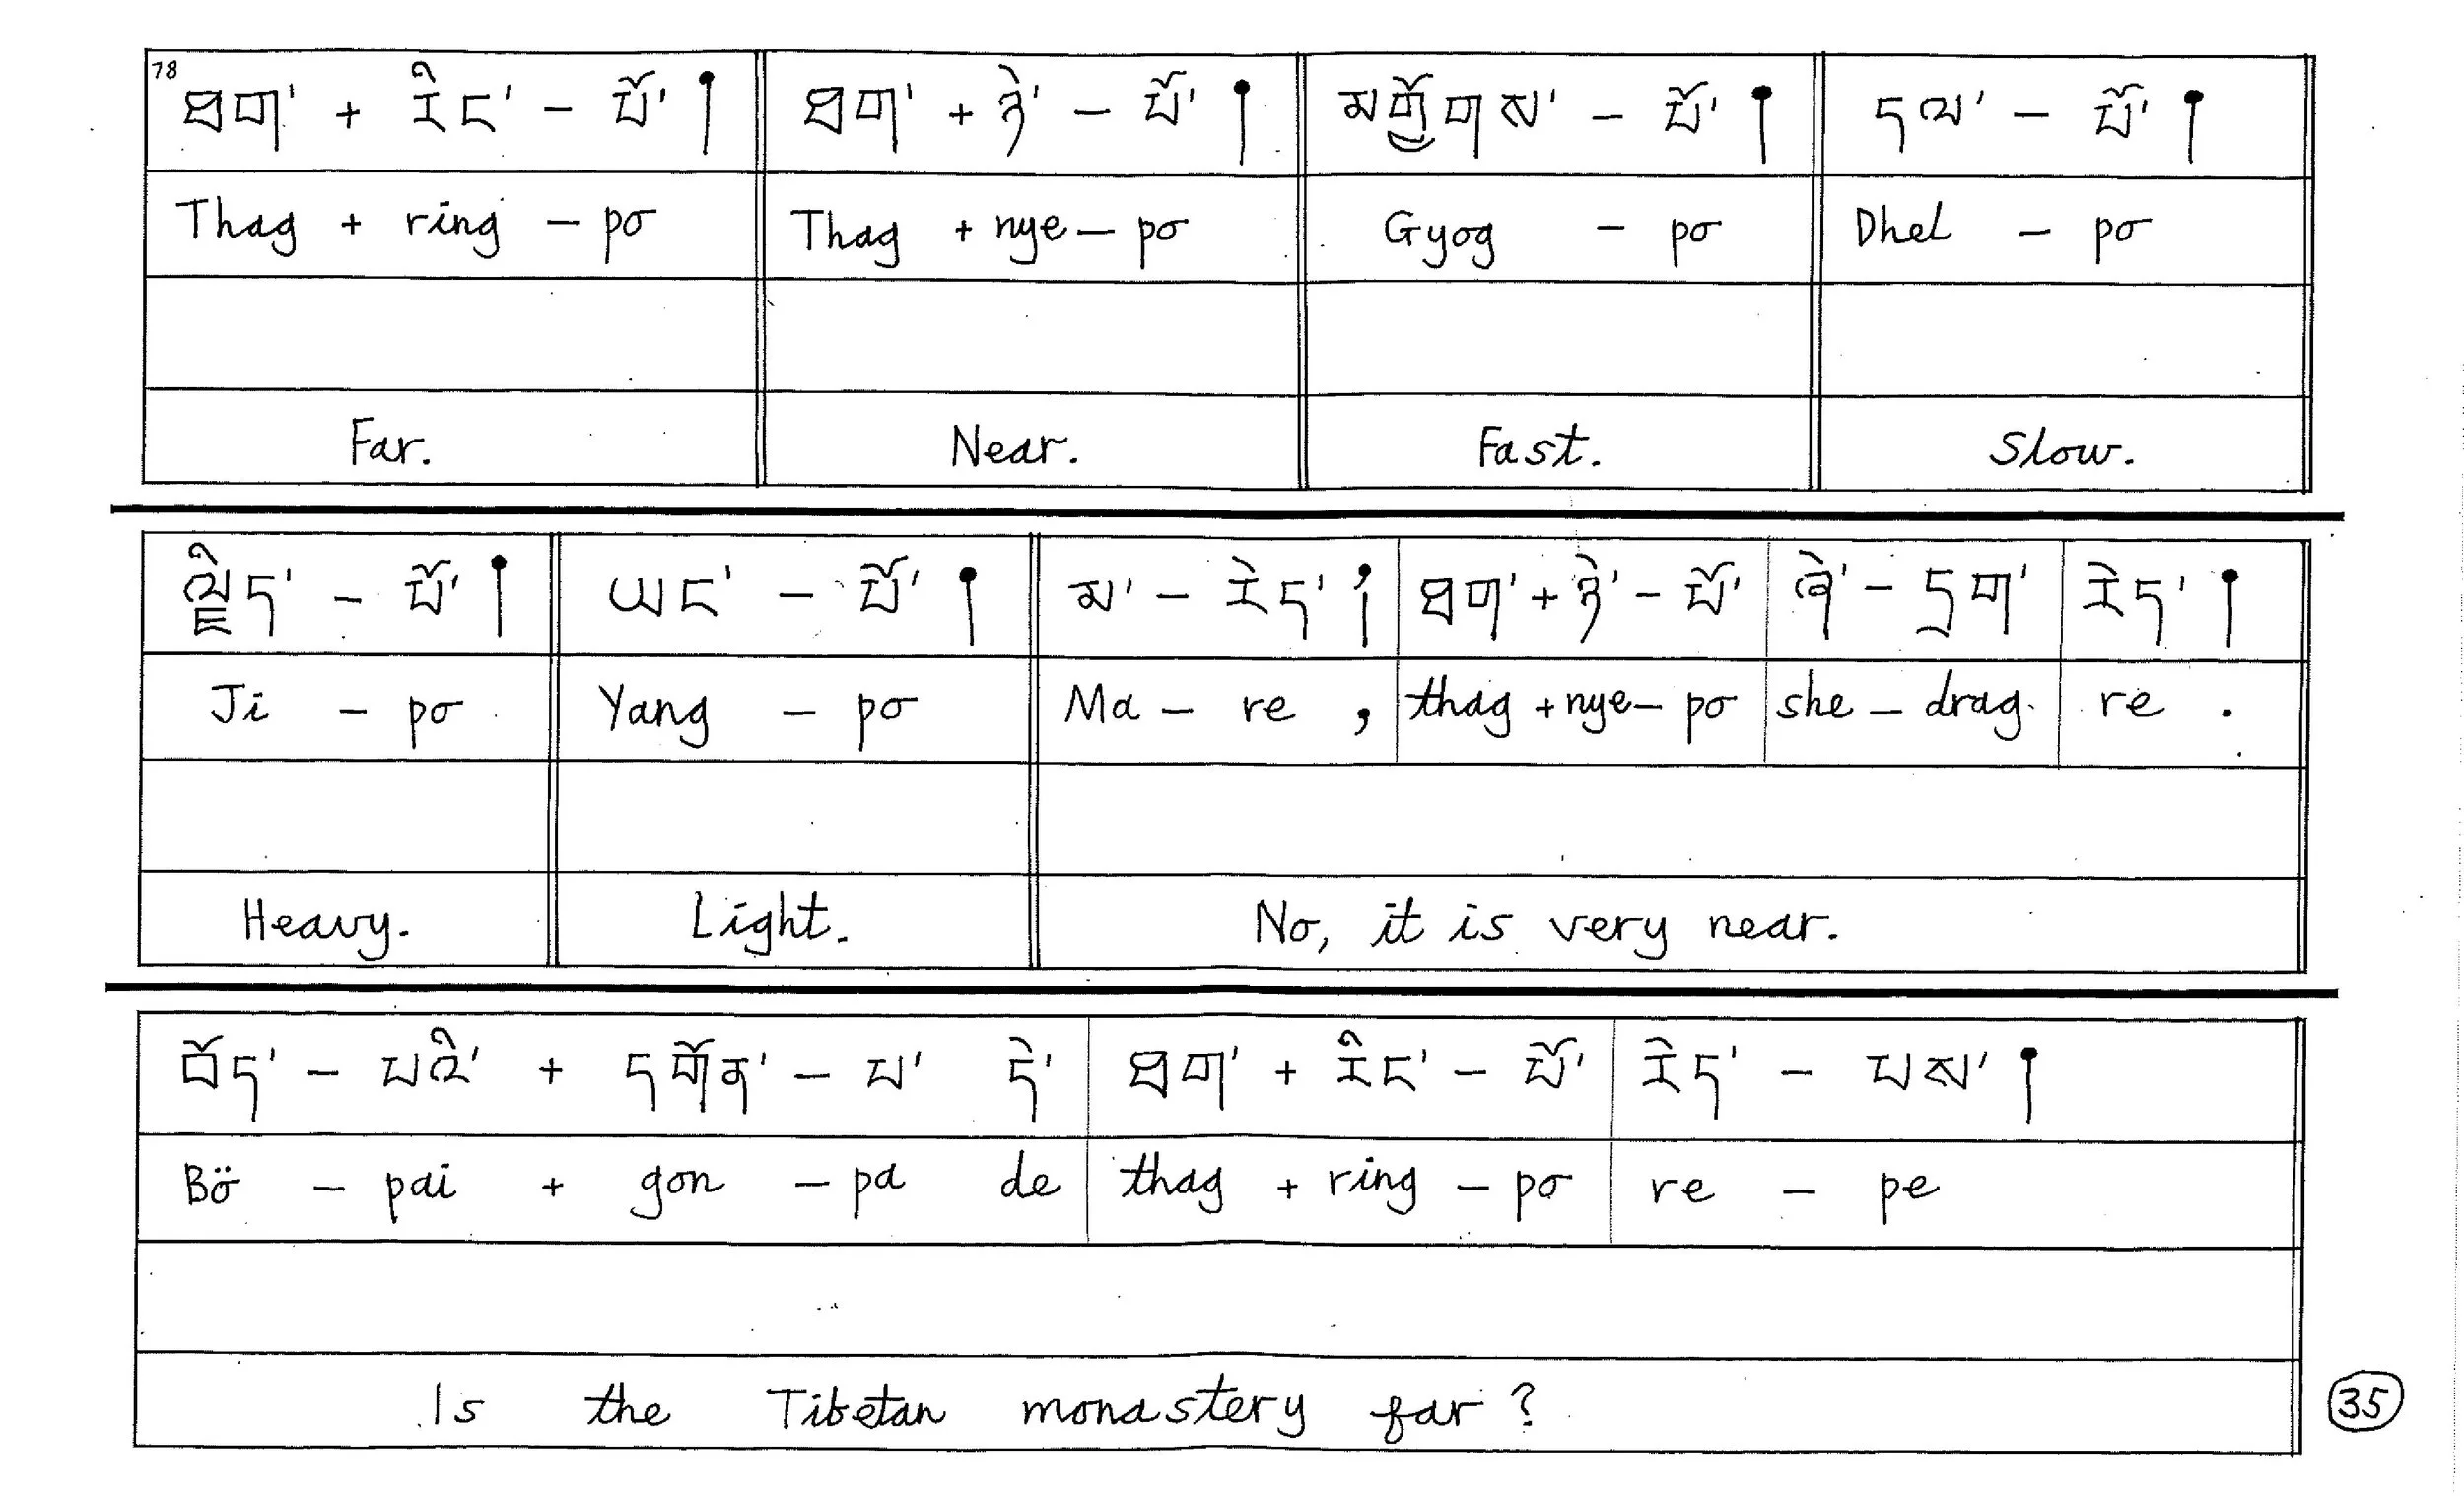 78
ཐག་ + རིང་ - པོ་། ཐག་ + ཉེ་ - པོ་། མགྱོགས་ - པོ་། དལ་ - པོ་།
Thag + ring - po Thag + nye - po Gyog - po Dhel - po
Far. Near. Fast. Slow.
ལྗིད་ - པོ་། ཡང་ - པོ་། མ་ - རེད་། ཐག་ + ཉེ་ - པོ་ ཞེ་ - དྲག་ རེད་།
Ji - po Yang - po Ma - re , thag + nye - po she - drag re .
Heavy. Light. No, it is very near.
བོད་ - པའི་ + དགོན་ - པ་ དེ་ ཐག་ + རིང་ - པོ་ རེད་ - པས་།
Bö - pai + gon - pa de thag + ring - po re - pe
Is the Tibetan monastery far ?
35